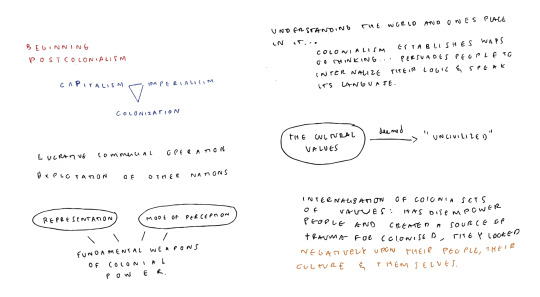 BEGINNING
POSTCOLONIALISM
CAPITALISM IMPERIALISM
COLONIZATION
LUCRATIVE COMMERCIAL OPERATION
EXPLOTATION OF OTHER NATIONS
REPRESENTATION
MODE OF PERCEPTION
FUNDAMENTAL WEAPONS
OF COLONIAL
POWER.
UNDERSTANDING THE WORLD AND ONES PLACE
IN IT...
COLONIALISM ESTABLISHES WAYS
OF THINKING... PERSUADES PEOPLE TO
INTERNALIZE THEIR LOGIC & SPEAK
ITS LANGUAGE.
THE CULTURAL
VALUES
deemed
"UNCIVILIZED"
INTERNALISATION OF COLONIA SETS
OF VALUES: HAS DISEMPOWER
PEOPLE AND CREATED A SOURCE OF
TRAUMA FOR COLONISED, THEY LOOKED
NEGATIVELY UPON THEIR PEOPLE, THEIR
CULTURE & THEMSELVES.